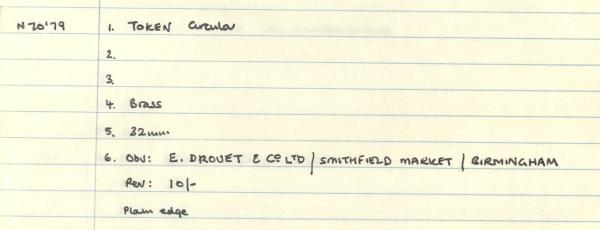 N20'79 1. TOKEN Circular
2.
3.
4. Brass
5. 32mm.
6. Obv: E. DROUET & Co LTD / SMITHFIELD MARKET / BIRMINGHAM
Rev: 10/-
Plain edge